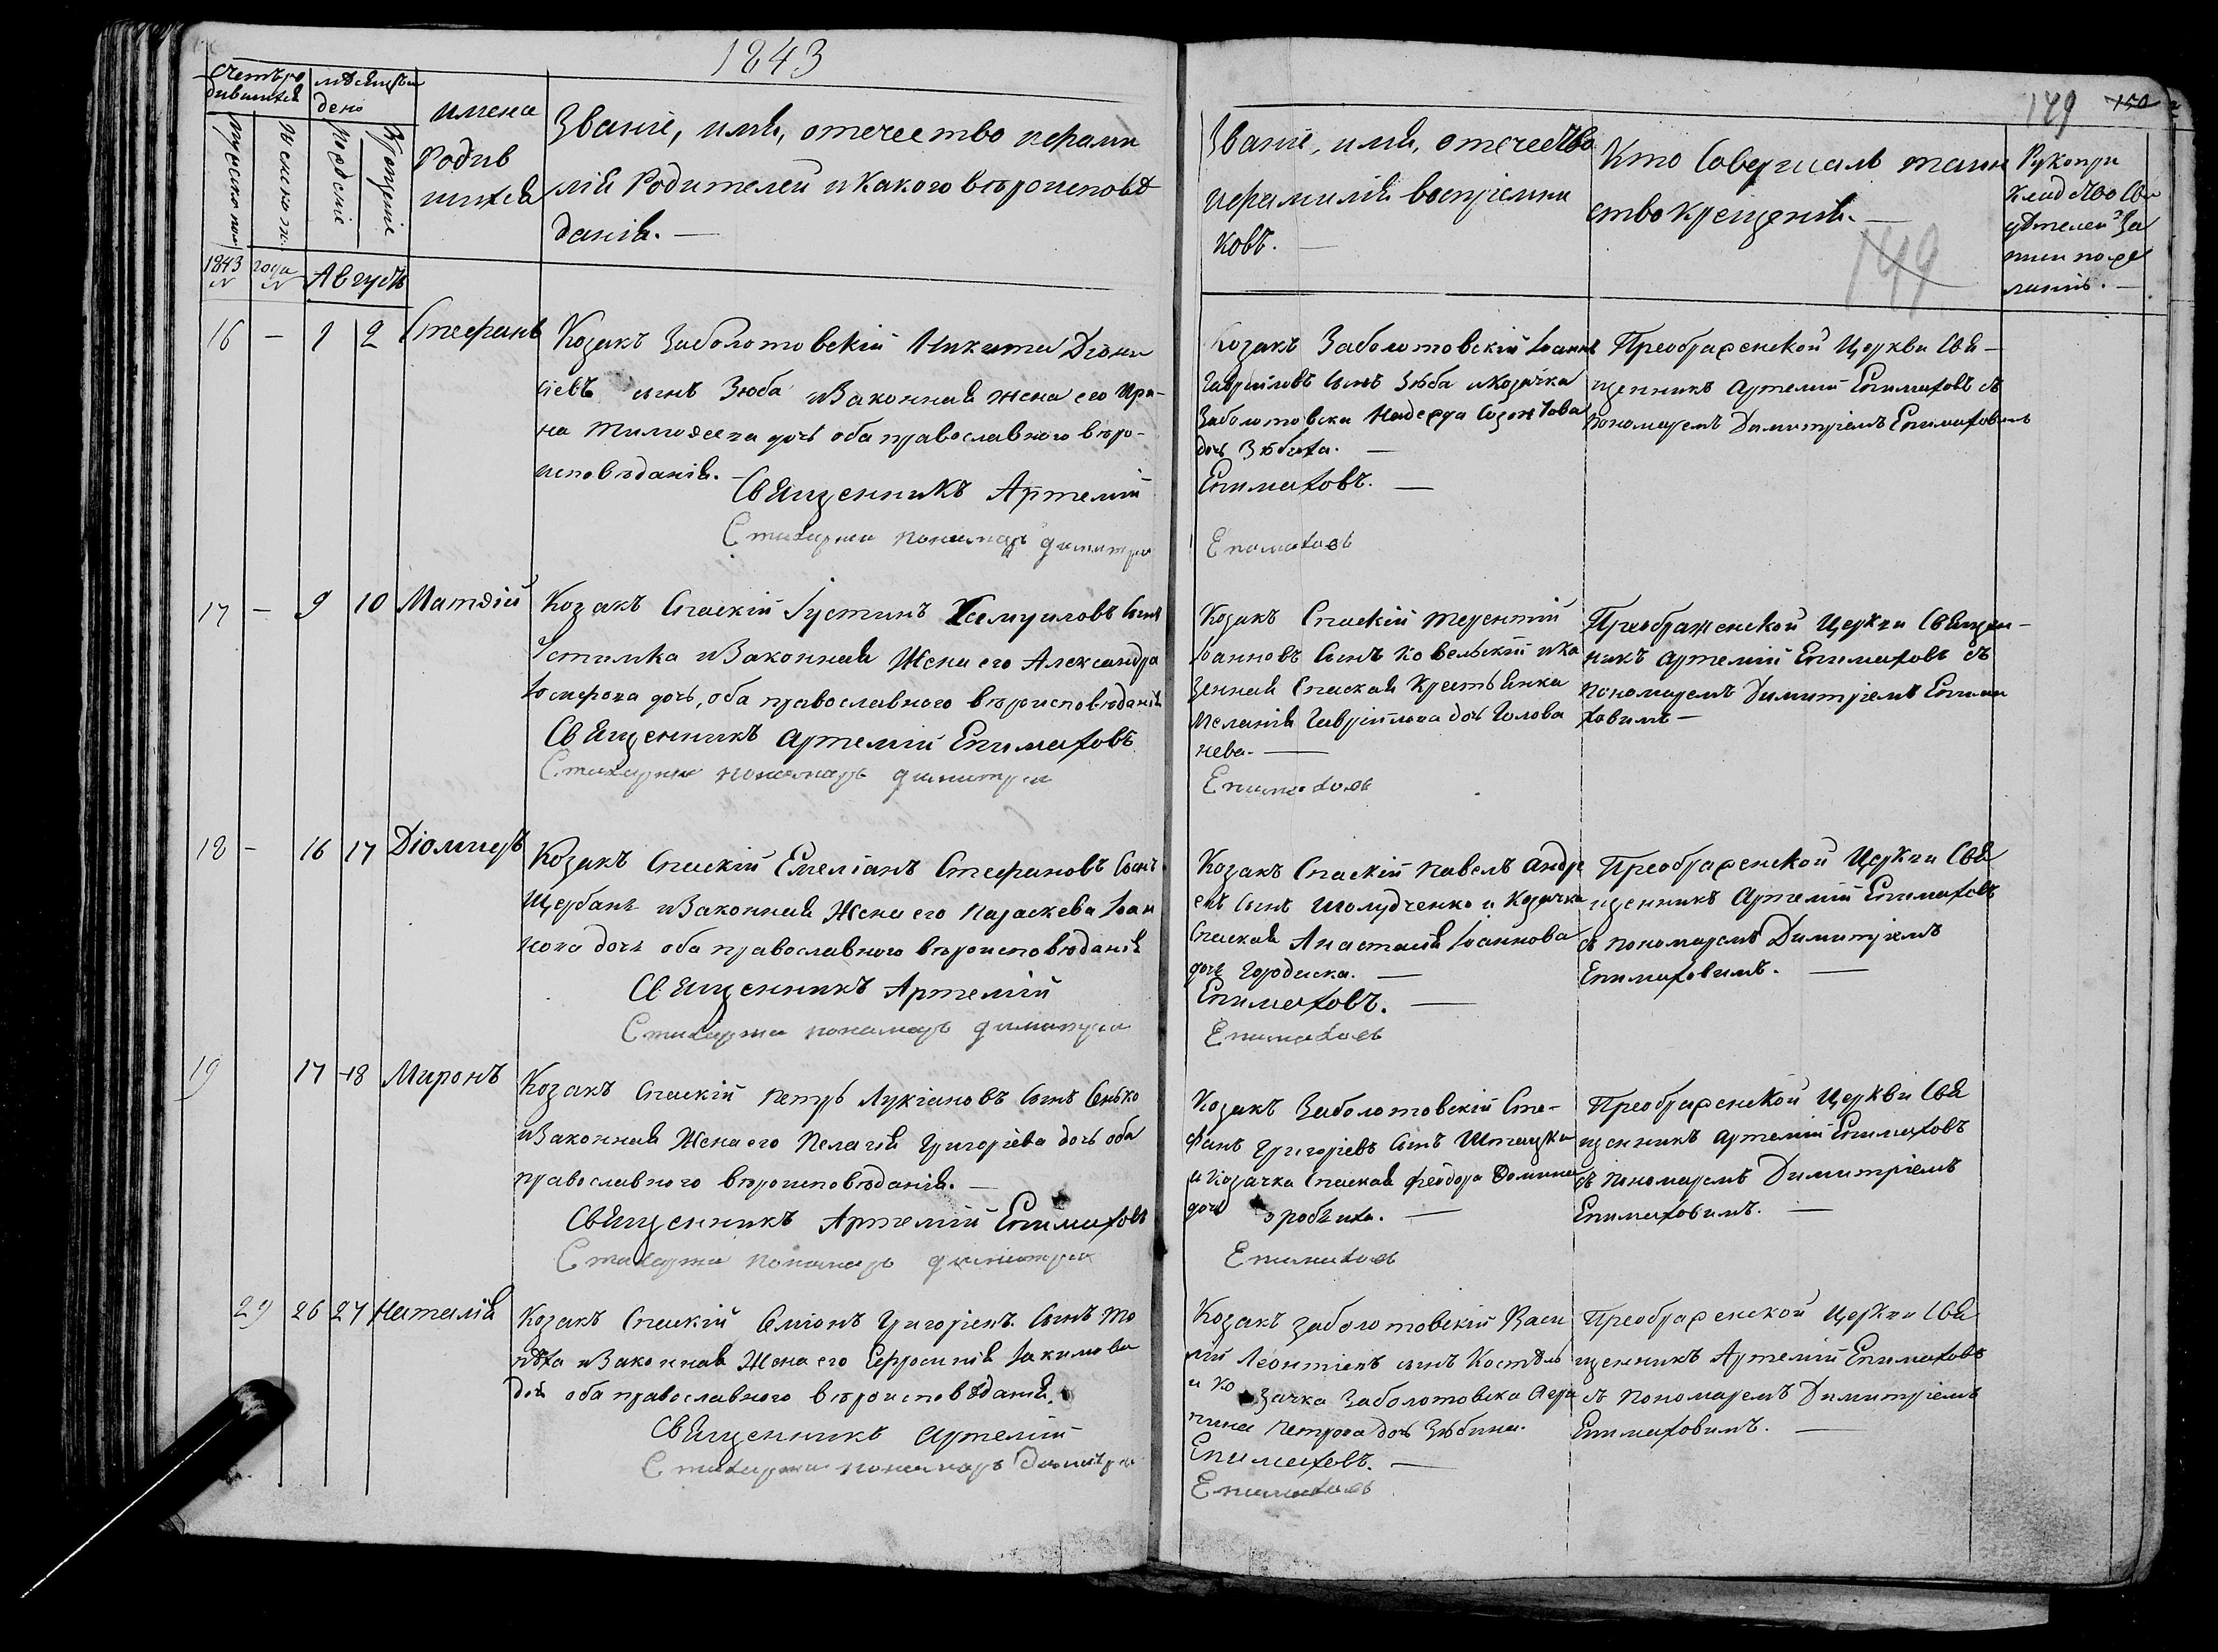 1843
149 150
Счетъ ро
дившихся
мѣсяцъ и
день
имена
Родив
шихся
Званіе, имя, отечество и фами
лія Родителей и какого вѣроисповѣ
данія. —
Мужеска пола
Женска п.
Рождѣніе
Крещеніе
1843
года
Августъ
Званіе, имя, отечество
и фамилія воспріемни
ковъ. —
Кто Совершалъ таин
ство крещенія. —
149
Рукопри
кладство Сви
дѣтелей За
писи по же
ланію. —
16 — 1 2 Стефанъ
Козакъ Заболотовскій Никита Діони
сіевъ сынъ Зюба и Законная жена его Ири-
на Тимофеева дочь оба православного вѣро-
исповѣданія. —
Священникъ Артемій
Стихарни пономарь димитри
Козакъ Заболотовскій Іоаннъ
Гавріиловъ сынъ Зюба и Козачка
Заболотовска Надежда Созонтова
дочь Зюбиха. —
Епимаховъ. —
Епимаховъ
Преображенской Церкви Свя-
щенникъ Артемій Епимаховъ съ
Пономаремъ Димитріемъ Епимаховимъ
17 — 9 10 Матѳій
Козакъ Спаскій Іустинъ Самуиловъ Сынъ
Устимка и Законная Жена его Александра
Іосифова дочь, оба православного вѣроисповѣданія
Священникъ Артемій Епимаховъ
Стихарни пономарь димитри
Козакъ Спаскій Терентій
Іоанновъ Сынъ Ковельскій и Ка
зенная Спаская Крестьянка
Меланія Гавріилова дочь Голова
нева. —
Епимаховъ
Преображенской Церкви Священ-
никъ Артемій Епимаховъ съ
пономаремъ Димитріемъ Епима
ховимъ —
18 — 16 17 Діомидъ
Козакъ Спаскій Емеліанъ Стефановъ Сынъ
Щербань и Законная Жена его Параскева Іоан
нова дочь оба православного вѣроисповѣданія
Священникъ Артемій
Стихарни пономарь димитри
Козакъ Спаскій Павелъ Андре
евъ Сынъ Шолудченко и Козачка
Спаская Анастасія Іоаннова
дочь Городиска. —
Епимаховъ. —
Епимаховъ
Преображенской Церкви Свя
щенникъ Артемій Епимаховъ
съ пономаремъ Димитріемъ
Епимаховимъ. —
19 17 18 Миронъ
Козакъ Спаскій Петръ Лукіановъ Сынъ Сенько
и Законная Жена его Пелагія Григоріева дочь оба
православного вѣроисповѣданія. —
Священникъ Артемій Епимаховъ
Стихарни пономарь димитри
Козакъ Заболотовскій Сте-
фанъ Григоріевъ Сынъ
и Козачка Спаская Феодора
дочь
Епимаховъ
Преображенской Церкви Свя
щенникъ Артемій Епимаховъ
съ Пономаремъ Димитріемъ
Епимаховимъ. —
29 26 27 Наталія
Козакъ Спаскій Семіонъ Григоріевъ Сынъ
и Законная Жена его Ефросинія Іакимова
дочь оба православного вѣроисповѣданія.
Священникъ Артемій
Стихарни пономарь Димитри
Козакъ заболотовскій Васи
лій Леонтіевъ сынъ
и Козачка Заболотовска Агри
пина Петрова дочь Зюбина.
Епимаховъ. —
Епимаховъ
Преображенской Церкви Свя
щенникъ Артемій Епимаховъ
съ Пономаремъ Димитріемъ
Епимаховимъ. —